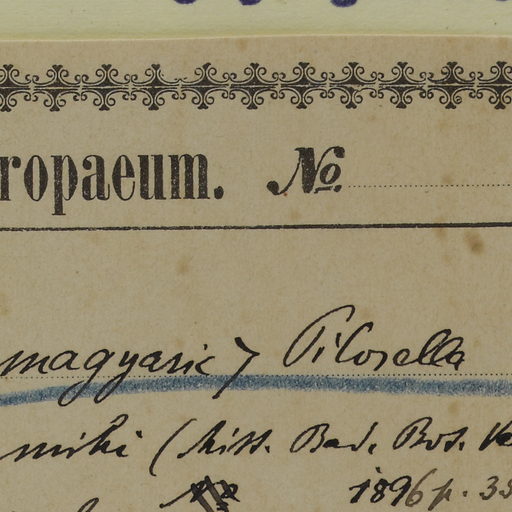 ropaeum. No.
magyaric > Pilosella
mihi (Mitt. Bad. Bot. Ve
1896 p. 33